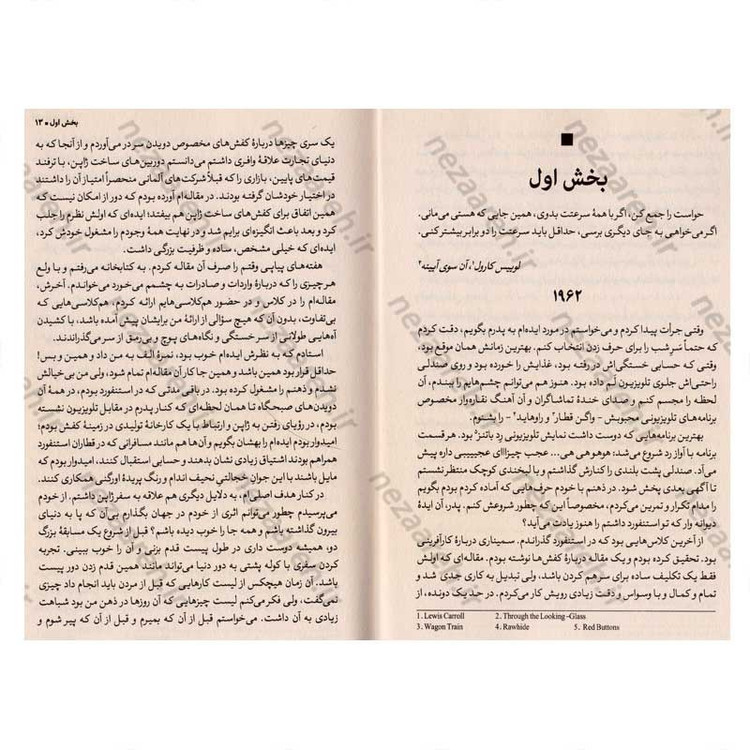 بخش اول
حواست را جمع کن، اگر با همهٔ سرعتت بدوی، همین جایی که هستی می‌مانی.
اگر می‌خواهی به جای دیگری برسی، حداقل باید سرعتت را دو برابر بیشتر کنی.
لوییس کارول۱، آن سوی آیینه۲
۱۹۶۲
وقتی جرأت پیدا کردم و می‌خواستم در مورد ایده‌ام به پدرم بگویم، دقت کردم
که حتماً سَرِ شب را برای حرف زدن انتخاب کنم. بهترین زمانش همان موقع بود،
وقتی که حسابی خستگی‌اش در رفته بود، غذایش را خورده بود و روی صندلی
راحتی‌اش جلوی تلویزیون لَم داده بود. هنوز هم می‌توانم چشم‌هایم را ببندم، آن
لحظه را مجسم کنم و صدای خندهٔ تماشاگران و آن آهنگ نقاره‌وار مخصوص
برنامه‌های تلویزیونی محبوبش - واگن قطار۳ و راوهاید۴ - را بشنوم.
بهترین برنامه‌هایی که دوست داشت نمایش تلویزیونی رِد باتنز۵ بود. هر قسمت
برنامه با آواز رد شروع می‌شد: هوهو هی هی... عجب چیزااای عجیبیبی داره پیش
می‌آد. صندلی پشت بلندی را کنارش گذاشتم و با لبخندی کوچک منتظر نشستم
تا آگهی بعدی پخش شود. در ذهنم با خودم حرف‌هایی که آماده کردم بودم بگویم
را مدام تکرار و تمرین می‌کردم، مخصوصاً این که چطور شروعش کنم. پدر، آن ایدهٔ
دیوانه وار که تو استنفورد داشتم را هنوز یادت می‌آید؟
از آخرین کلاس‌هایی بود که در استنفورد گذراندم. سمیناری دربارهٔ کارآفرینی
بود. تحقیق کرده بودم و یک مقاله دربارهٔ کفش‌ها نوشته بودم. مقاله‌ای که اولش
فقط یک تکلیف ساده برای سرهم کردن باشد، ولی تبدیل به کاری جدی شد و
تمام و کمال و با وسواس و دقت زیادی رویش کار می‌کردم. در حد یک دونده، از
1. Lewis Carroll 2. Through the Looking-Glass
3. Wagon Train 4. Rawhide 5. Red Buttons
بخش اول • ۱۳
یک سری چیزها دربارهٔ کفش‌های مخصوص دویدن سر در می‌آوردم و از آنجا که به
دنیای تجارت علاقهٔ وافری داشتم می‌دانستم دوربین‌های ساخت ژاپن، با ترفند
قیمت‌های پایین، بازاری را که قبلاً شرکت‌های آلمانی منحصراً امتیاز آن را داشتند
در اختیار خودشان گرفته بودند. در مقاله‌ام آورده بودم که دور از امکان نیست که
همین اتفاق برای کفش‌های ساخت ژاپن هم بیفتد؛ ایده‌ای که اولش نظرم را جلب
کرد و بعد باعث انگیزه‌ای برایم شد و در نهایت همهٔ وجودم را مشغول خودش کرد.
ایده‌ای که خیلی مشخص، ساده و ظرفیت بزرگی داشت.
هفته‌های پیاپی وقتم را صرف آن مقاله کردم. به کتابخانه می‌رفتم و با ولع
هر چیزی را که دربارهٔ واردات و صادرات به چشمم می‌خورد می‌خواندم. آخرش،
مقاله‌ام را در کلاس و در حضور هم‌کلاسی‌هایم ارائه کردم. هم‌کلاسی‌هایی که
بی‌تفاوت، بدون آن که هیچ سؤالی از ارائهٔ من برایشان پیش آمده باشد، با کشیدن
آه‌هایی طولانی از سر خستگی و نگاه‌های پوچ و بی‌رمق از سر می‌گذراندند.
استادم که به نظرش ایده‌ام خوب بود، نمرهٔ الف به من داد و همین و بس!
حداقل قرار بود همین باشد و همین جا کار آن مقاله‌ام تمام شود، ولی من بی‌خیالش
نشدم و ذهنم را مشغول کرده بود. در باقی مدتی که در استنفورد بودم، در همهٔ آن
دویدن‌های صبحگاه تا همان لحظه‌ای که کنار پدرم در مقابل تلویزیون نشسته
بودم، در رؤیای رفتن به ژاپن و ارتباط با یک کارخانهٔ تولیدی در زمینهٔ کفش بودم؛
امیدوار بودم ایده‌ام را بهشان بگویم و آن‌ها هم مانند مسافرانی که در قطاران استنفورد
همراهم بودند اشتیاق زیادی نشان بدهند و حسابی استقبال کنند، امیدوار بودم که
مایل باشند با این جوانِ خجالتیِ نحیف اندام و رنگ پریدهٔ اورگنی همکاری کنند.
در کنار هدف اصلی‌ام، به دلایل دیگری هم علاقه به سفر ژاپن داشتم. از خودم
می‌پرسیدم چطور می‌توانم اثری از خودم در جهان بگذارم بی‌آن که پا به دنیای
بیرون گذاشته باشم و همه جا را خوب دیده باشم؟ قبل از شروع یک مسابقهٔ بزرگ
دو، همیشه دوست داری در طول پیست قدم بزنی و آن را خوب ببینی. تجربه
کردن سفری با کوله پشتی به دور دنیا می‌تواند مانند همین قدم زدن دور پیست
باشد. آن زمان هیچکس از لیست کارهایی که قبل از مردن باید انجام داد چیزی
نمی‌گفت، ولی فکر می‌کنم لیست چیزهایی که آن روزها در ذهن من بود شباهت
زیادی به آن داشت. می‌خواستم قبل از آن که بمیرم و قبل از آن که پیر شوم و
nezaareh.ir